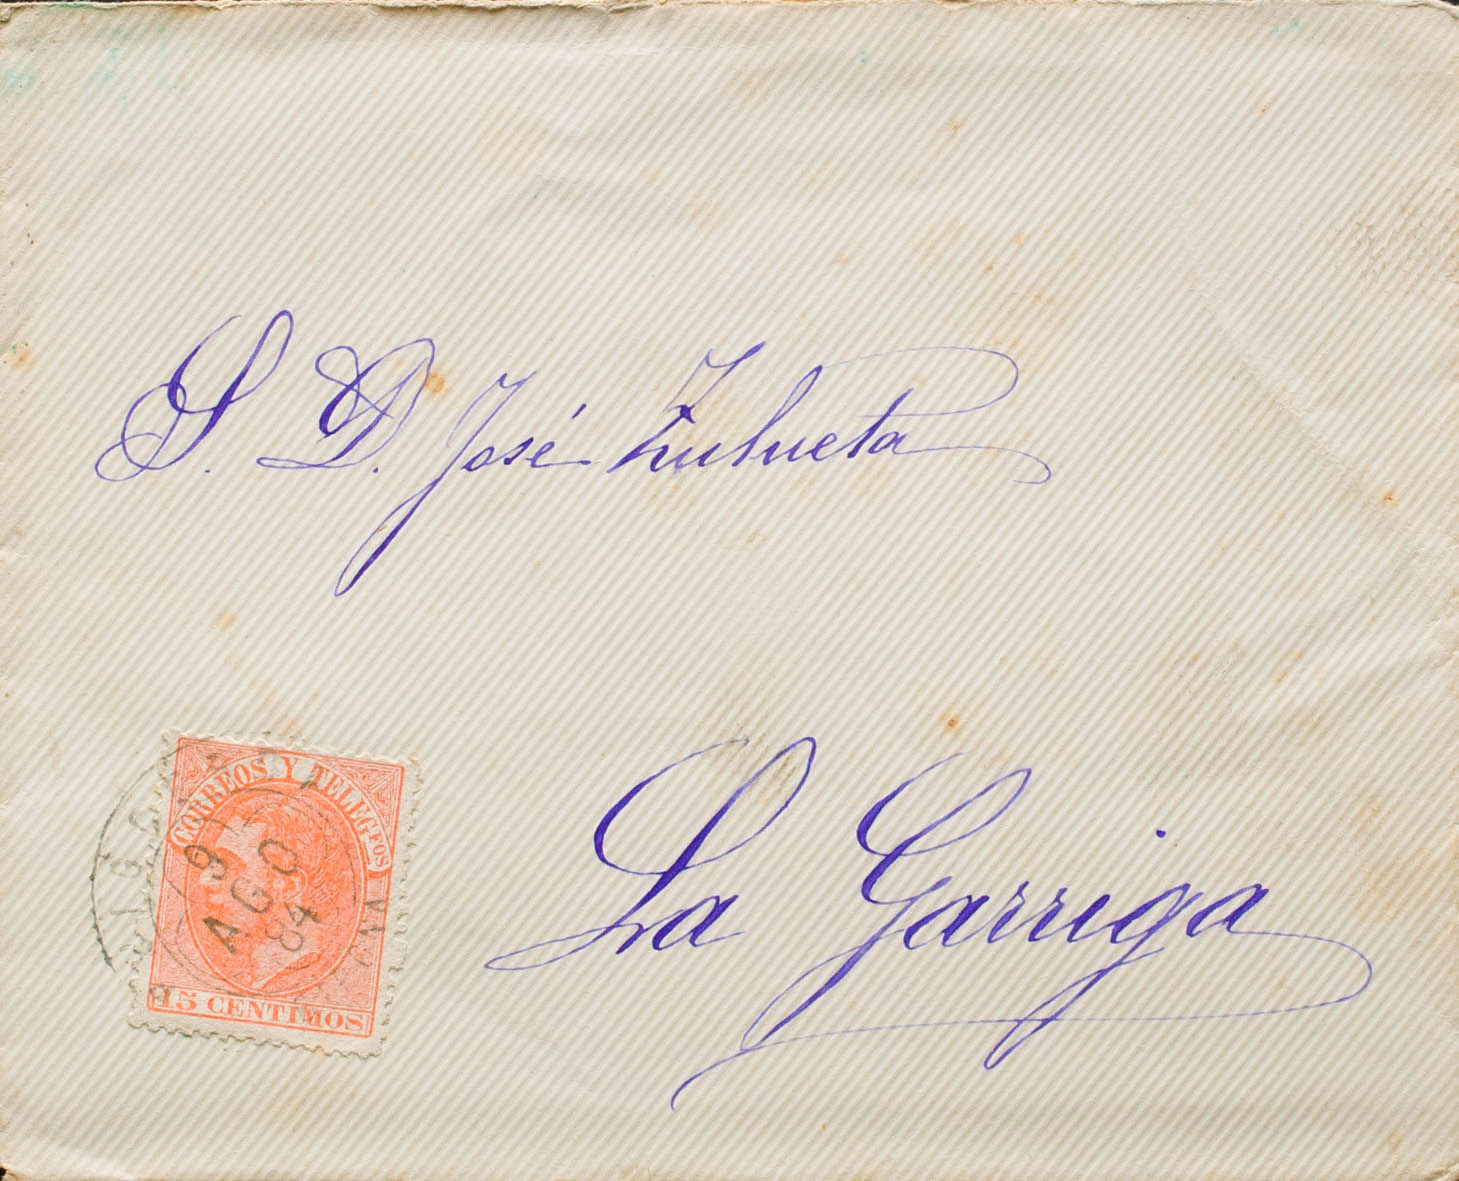 S. D. José Zulueta
La Garriga
CORREOS Y TELEGFOS
9
AGO
84
15 CENTIMOS